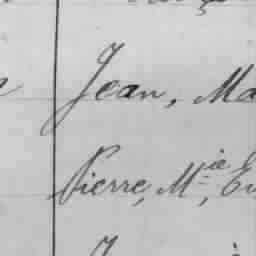 Jean, Ma
Pierre, Mie, Eu